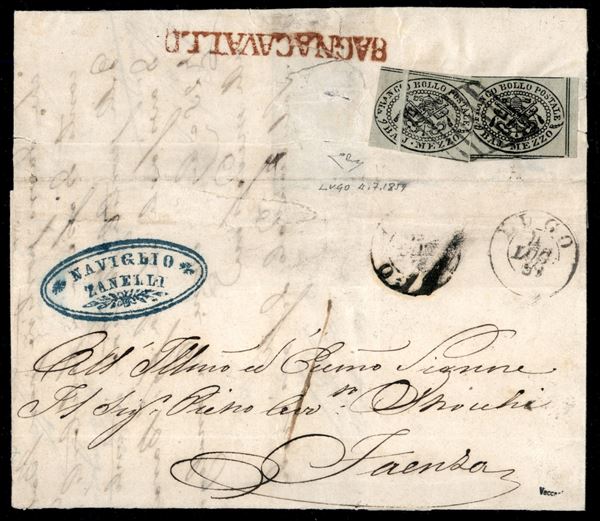 BAGNACAVALLO
FRANCO BOLLO POSTALE
BAJ. MEZZO
FRANCO BOLLO POSTALE
BAJ. MEZZO
LUGO 4.7.1859
LUGO
4
LUG
59
NAVIGLIO
ZANELLI
All' Illmo ed Ecmo Signore
Il Sigr Pietro Cavr Strocchi
1
Faenza
Vaccari